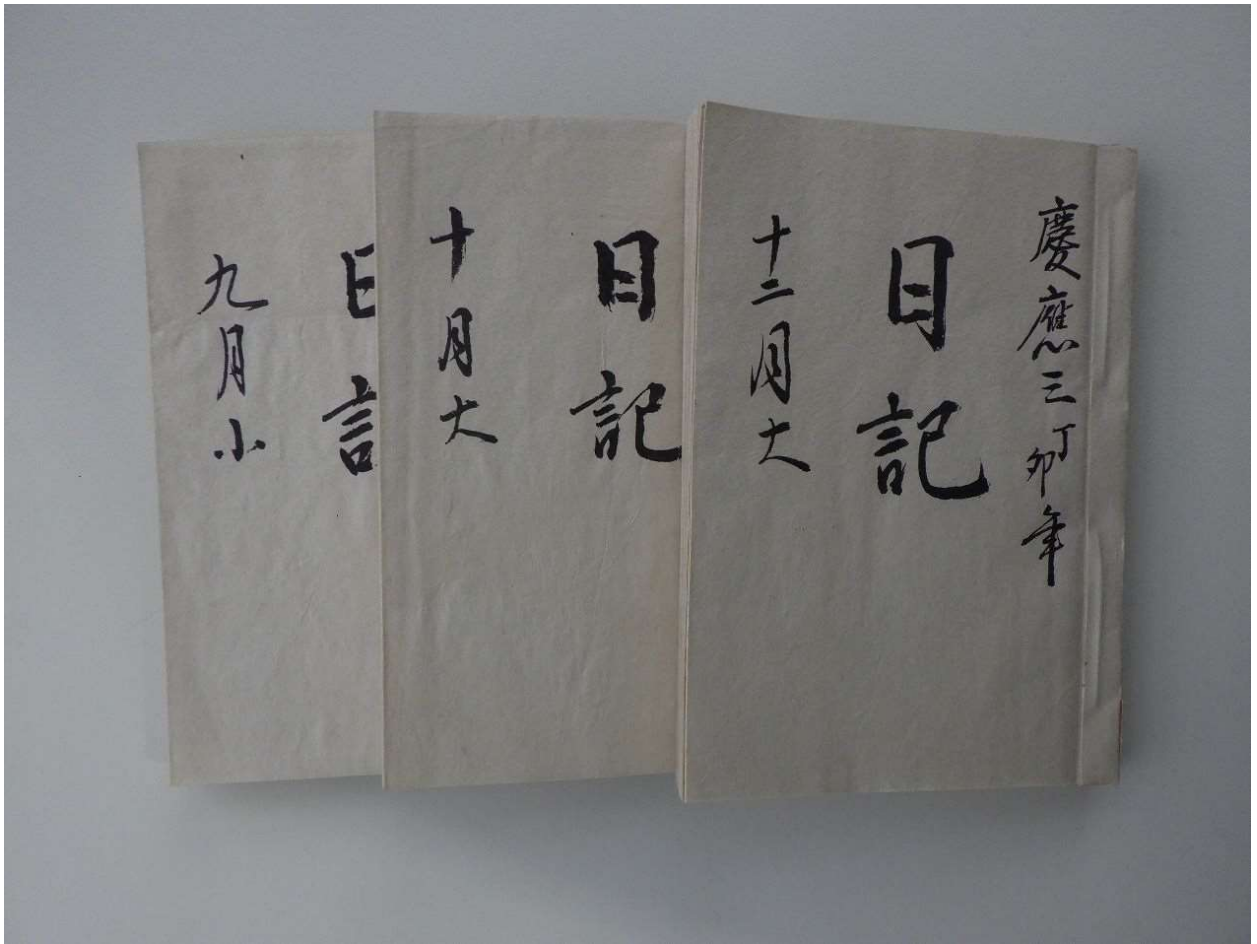 慶應三丁卯年
日記
十二月大
日記
十月大
日記
九月小